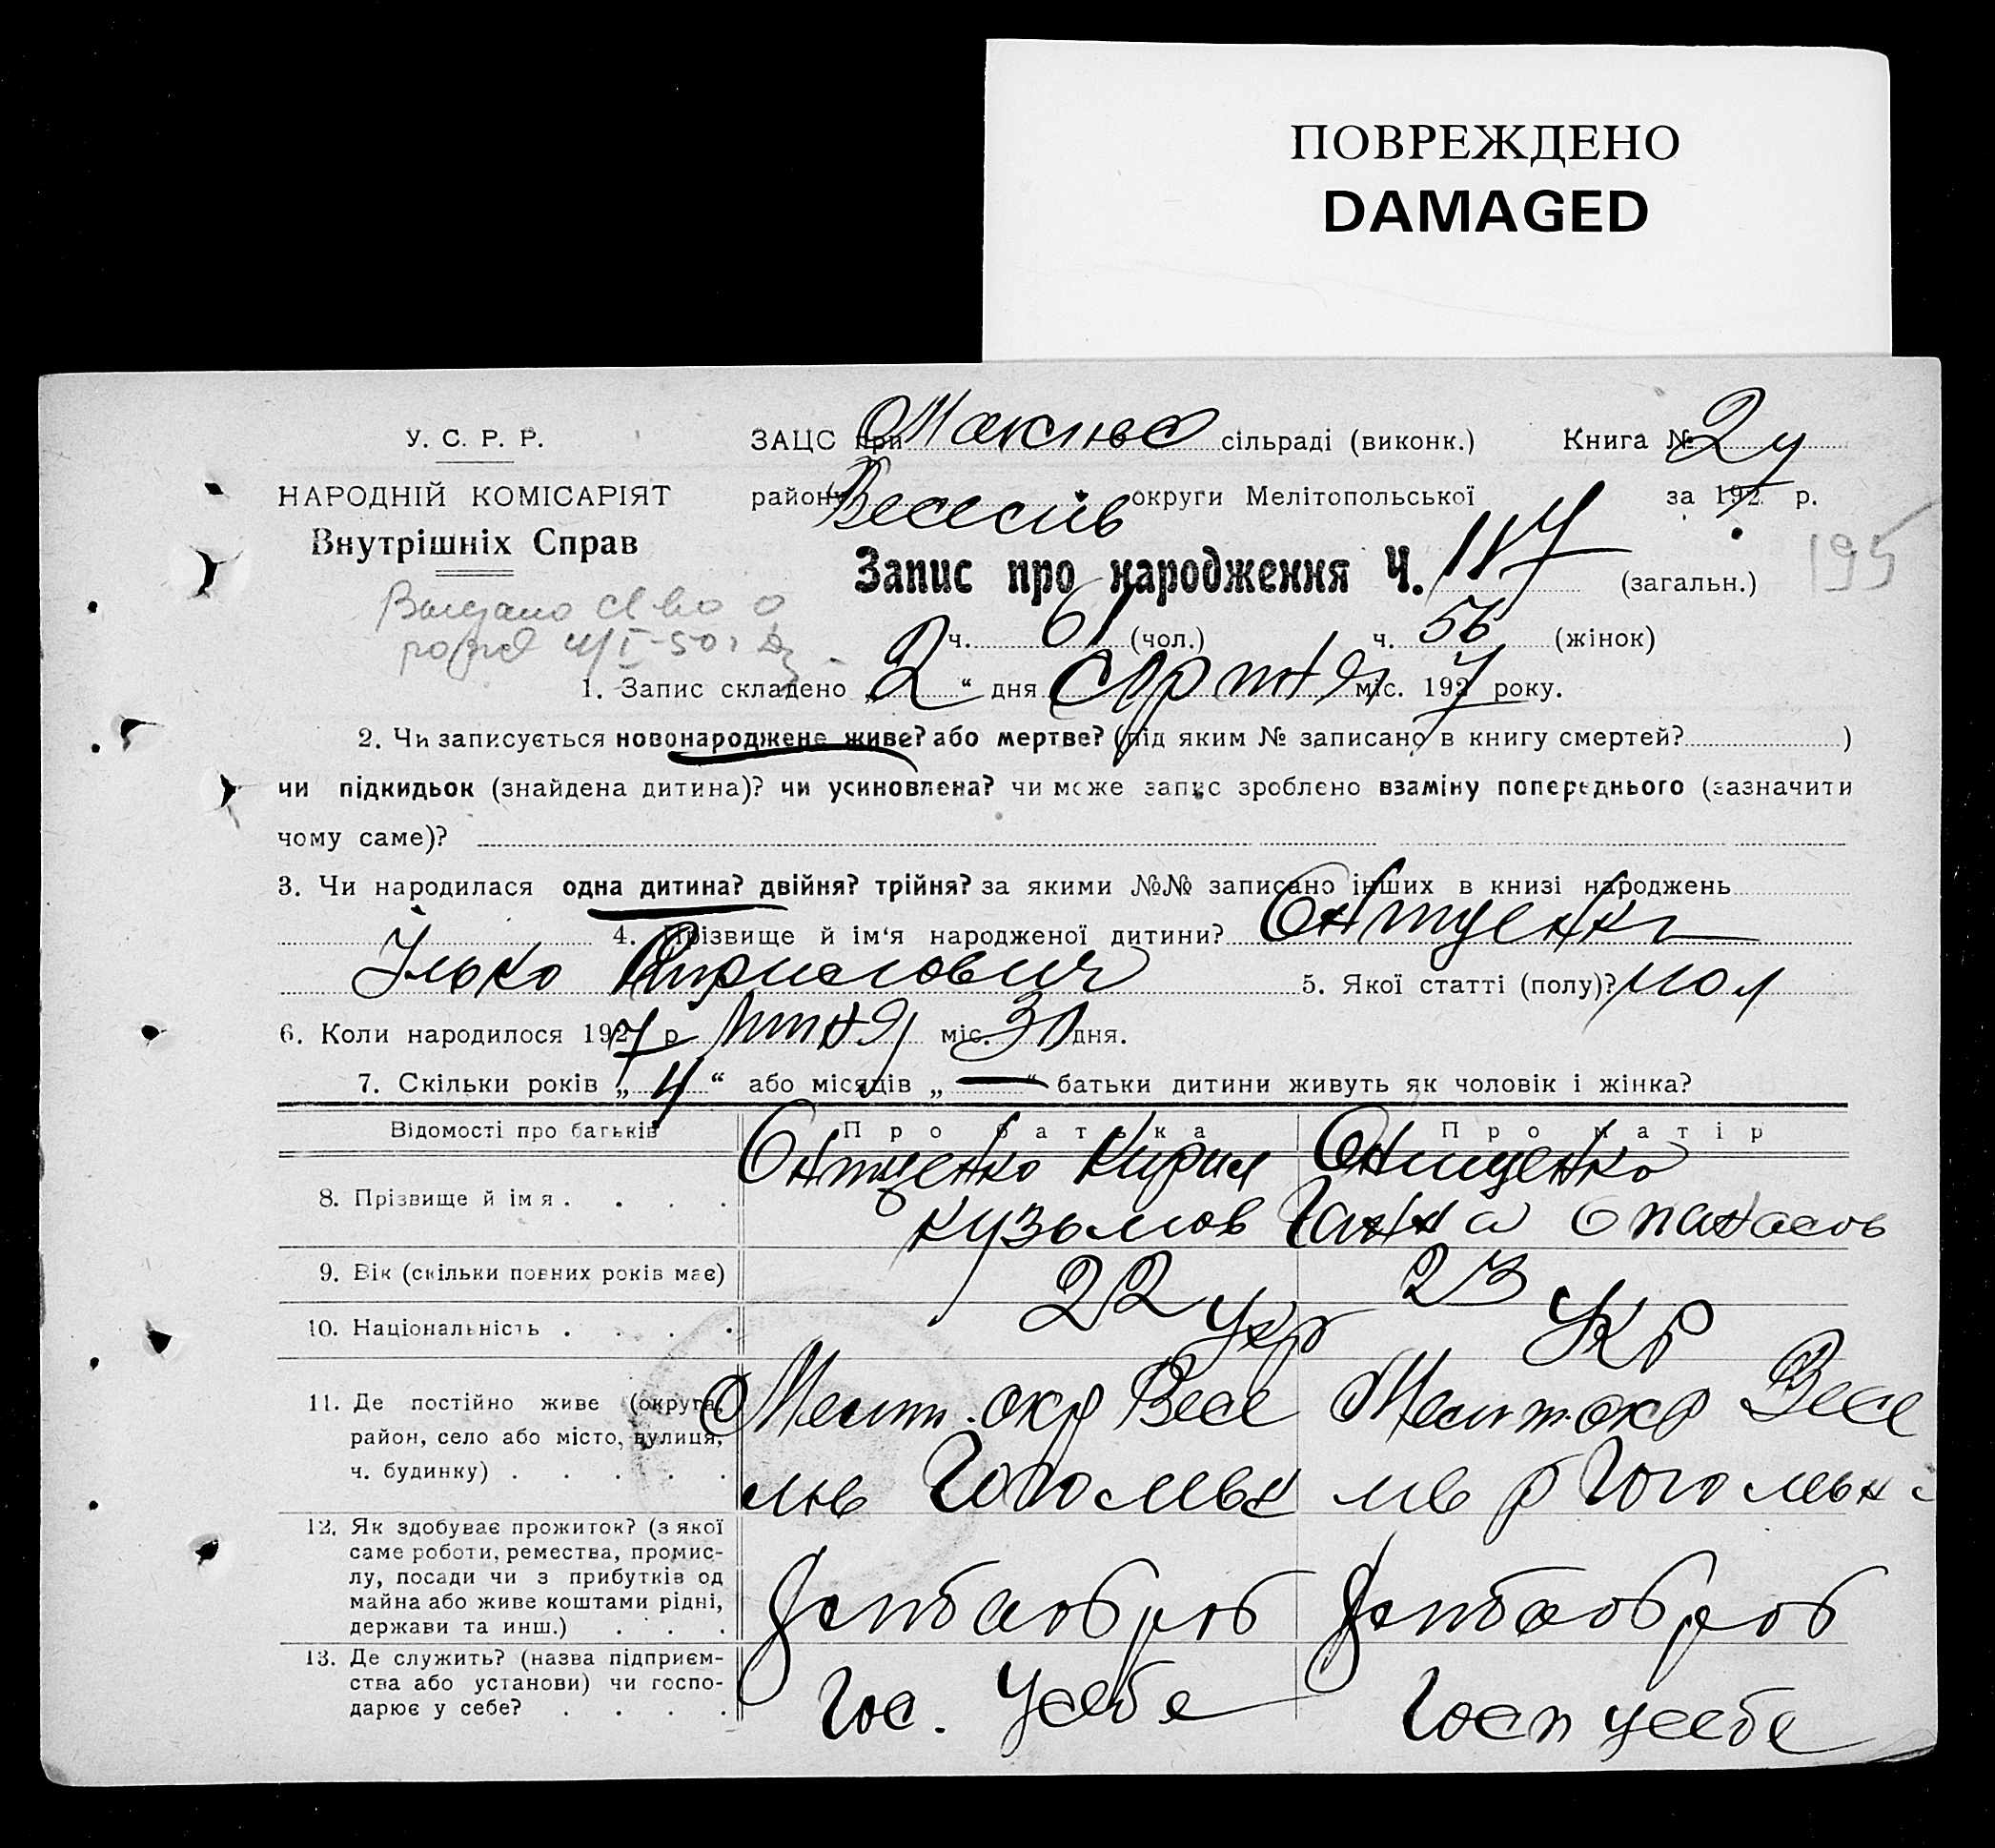 ПОВРЕЖДЕНО
DAMAGED
У. С. Р. Р.
ЗАЦС при сільраді (виконк.) Книга № 2
НАРОДНІЙ КОМІСАРІЯТ
району Веселів округи Мелітопольської за 1927 р.
Внутрішніх Справ
Запис про народження Ч. 117 (загальн.)
195
ч. 61 (чол.) ч. 56 (жінок)
1. Запис складено „ 2 “ дня серпня міс. 1927 року.
2. Чи записується новонароджене живе? або мертве? (під яким № записано в книгу смертей? )
чи підкидьок (знайдена дитина)? чи усиновлена? чи може запис зроблено взаміну попереднього (зазначити
чому саме)?
3. Чи народилася одна дитина? двійня? трійня? за якими №№ записано інших в книзі народжень
4. Прізвище й ім‘я народженої дитини? Онищенко
Ілько Кирилович 5. Якої статті (полу)? чол
6. Коли народилося 1927 р липня міс. 30 дня.
7. Скільки років „ 4 “ або місяців „ — “ батьки дитини живуть як чоловік і жінка?
Відомості про батьків Про батька Про матір
8. Прізвище й ім я . . . . Онищенко Кирил Онищенко
Кузьмов Ганна Опанасов
9. Вік (скільки повних років має) 22 23
10. Національність . . . . Укр Укр
11. Де постійно живе (округа, Мелит. окр Весе Мелит. окр Весе
район, село або місто, вулиця,
ч. будинку) . . . . . лів Гогольк лів р Гогольк
12. Як здобуває прожиток? (з якої
саме роботи, ремества, промис-
лу, посади чи з прибутків од
майна або живе коштами рідні,
держави та инш.) . . . хлібаоброб хлібаоброб
13. Де служить? (назва підприєм-
ства або установи) чи госпо-
дарює у себе? . . . . Гос. усебе Госп усебе